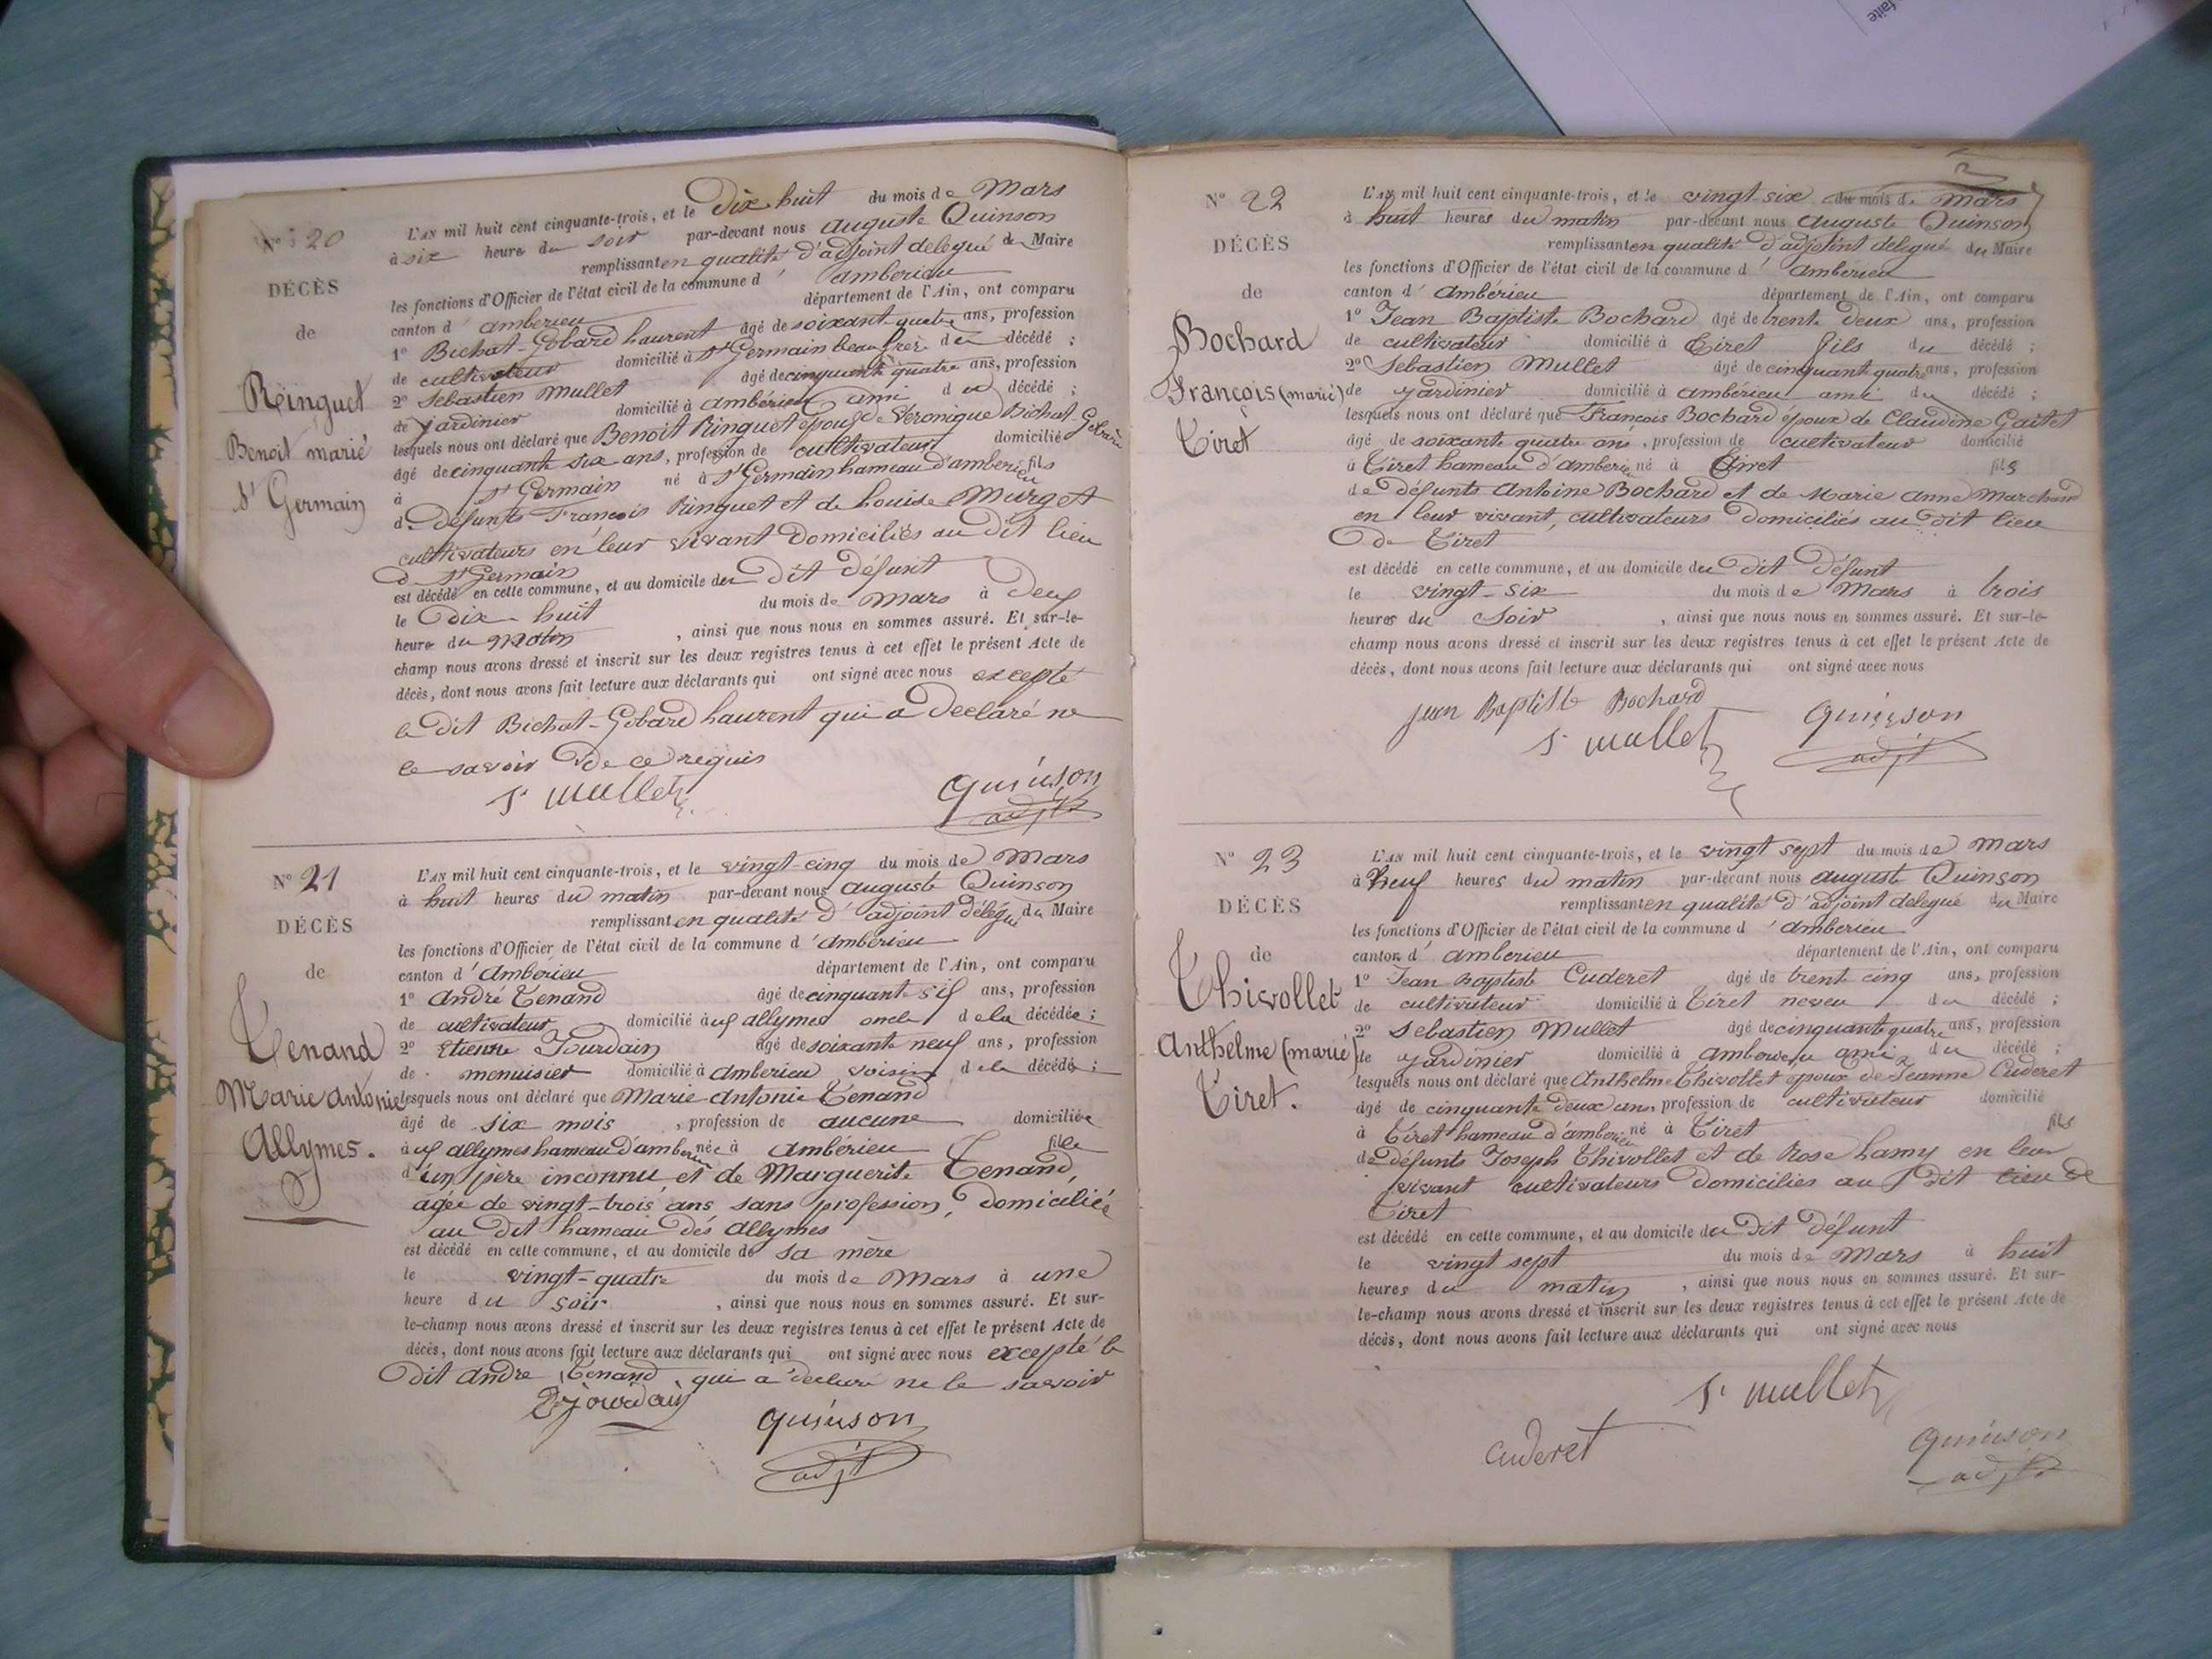 faite
N° 20
DÉCÈS
de
Ringuet
Benoit marié
St Germain
L'AN mil huit cent cinquante-trois, et le Dix huit du mois de Mars
à six heure du soir par-devant nous Auguste Quinson
remplissant en qualité d'adjoint delegué du Maire
les fonctions d'Officier de l'état civil de la commune d'ambérieu
canton d'ambérieu département de l'Ain, ont comparu
1° Bichat-Gobard Laurent âgé de soixante quatre ans, profession
de cultivateur domicilié à St Germain beau frère du décédé ;
2° Sebastien Mullet âgé de cinquante quatre ans, profession
de jardinier domicilié à ambérieu ami du décédé ;
lesquels nous ont déclaré que Benoit Ringuet époux de Veronique Bichat-Gobard
âgé de cinquante six ans, profession de cultivateur domicilié
à St Germain né à St Germain hameau d'amberieu fils
de défunts François Ringuet et de Louise Murget
cultivateurs en leur vivant domiciliés au dit lieu
de St Germain
est décédé en cette commune, et au domicile du dit défunt
le Dix-huit du mois de Mars à Deux
heure du Matin , ainsi que nous nous en sommes assuré. Et sur-le-
champ nous avons dressé et inscrit sur les deux registres tenus à cet effet le présent Acte de
décès, dont nous avons fait lecture aux déclarants qui ont signé avec nous excepté
le dit Bichat-Gobard Laurent qui a declaré ne
le savoir de ce requis
S. mullet quinson
adjt
N° 21
DÉCÈS
de
Tenand
Marie Antonie
Allymes.
L'AN mil huit cent cinquante-trois, et le vingt-cinq du mois de Mars
à huit heures du matin par-devant nous auguste Quinson
remplissant en qualité d'adjoint délégué du Maire
les fonctions d'Officier de l'état civil de la commune d'ambérieu
canton d'Ambérieu département de l'Ain, ont comparu
1° André Tenand âgé de cinquante-six ans, profession
de cultivateur domicilié aux allymes oncle de la décédée ;
2° Etienne Jourdain âgé de soixante neuf ans, profession
de menuisier domicilié à amberieu voisin de la décédé ;
lesquels nous ont déclaré que Marie-Antonie Tenand
âgé de six mois , profession de aucune domiciliée
aux allymes hameau d'amberieu née à ambérieu fille
d'un père inconnu et de Marguerite Tenand,
agée de vingt-trois ans sans profession, domiciliée
au dit hameau des allymes
est décédé en cette commune, et au domicile de sa mère
le vingt-quatre du mois de Mars à une
heure du soir , ainsi que nous nous en sommes assuré. Et sur-
le-champ nous avons dressé et inscrit sur les deux registres tenus à cet effet le présent Acte de
décès, dont nous avons fait lecture aux déclarants qui ont signé avec nous excepté le
dit andré Tenand, qui a declaré ne le savoir
jourdain quinson
adjt
N° 22
DÉCÈS
de
Bochard
François (marié)
Tiret
L'AN mil huit cent cinquante-trois, et le vingt-six du mois de Mars
à huit heures du matin par-devant nous Auguste Quinson
remplissant en qualité d'adjoint delegué du Maire
les fonctions d'Officier de l'état civil de la commune d'ambérieu
canton d'ambérieu département de l'Ain, ont comparu
1° Jean Baptiste Bochard âgé de trente deux ans, profession
de cultivateur domicilié à Tiret fils du décédé ;
2° Sebastien Mullet âgé de cinquante quatre ans, profession
de jardinier domicilié à ambérieu ami du décédé ;
lesquels nous ont déclaré que François Bochard époux de Claudine Gaitet
âgé de soixante quatre ans, profession de cultivateur domicilié
à Tiret hameau d'amberieu né à Tiret fils
de défunts Antoine Bochard et de Marie Anne Marchand
en leur vivant, cultivateurs domiciliés au dit lieu
de Tiret
est décédé en cette commune, et au domicile du dit défunt
le vingt-six du mois de Mars à trois
heures du soir , ainsi que nous nous en sommes assuré. Et sur-le-
champ nous avons dressé et inscrit sur les deux registres tenus à cet effet le présent Acte de
décès, dont nous avons fait lecture aux déclarants qui ont signé avec nous
jean Baptiste Bochard quinson
S. mullet adjt
N° 23
DÉCÈS
de
Thivollet
Anthelme (marié)
Tiret.
L'AN mil huit cent cinquante-trois, et le vingt sept du mois de Mars
à neuf heures du matin par-devant nous auguste Quinson
remplissant en qualité d'adjoint delegué du Maire
les fonctions d'Officier de l'état civil de la commune d'ambérieu
canton d'amberieu département de l'Ain, ont comparu
1° Jean Baptiste Cuderet âgé de trente cinq ans, profession
de cultivateur domicilié à Tiret neveu du décédé ;
2° Sebastien Mullet âgé de cinquante quatre ans, profession
de jardinier domicilié à amberieu ami du décédé ;
lesquels nous ont déclaré que Anthelme Thivollet époux de Jeanne Cuderet
âgé de cinquante deux ans, profession de cultivateur domicilié
à Tiret hameau d'amberieu né à Tiret fils
de défunts Joseph Thivollet et de Rose Lamy en leur
vivant cultivateurs domiciliés au dit lieu de
Tiret
est décédé en cette commune, et au domicile du dit défunt
le vingt sept du mois de Mars à huit
heures du matin , ainsi que nous nous en sommes assuré. Et sur-
le-champ nous avons dressé et inscrit sur les deux registres tenus à cet effet le présent Acte de
décès, dont nous avons fait lecture aux déclarants qui ont signé avec nous
S. mullet
cuderet quinson
adjt